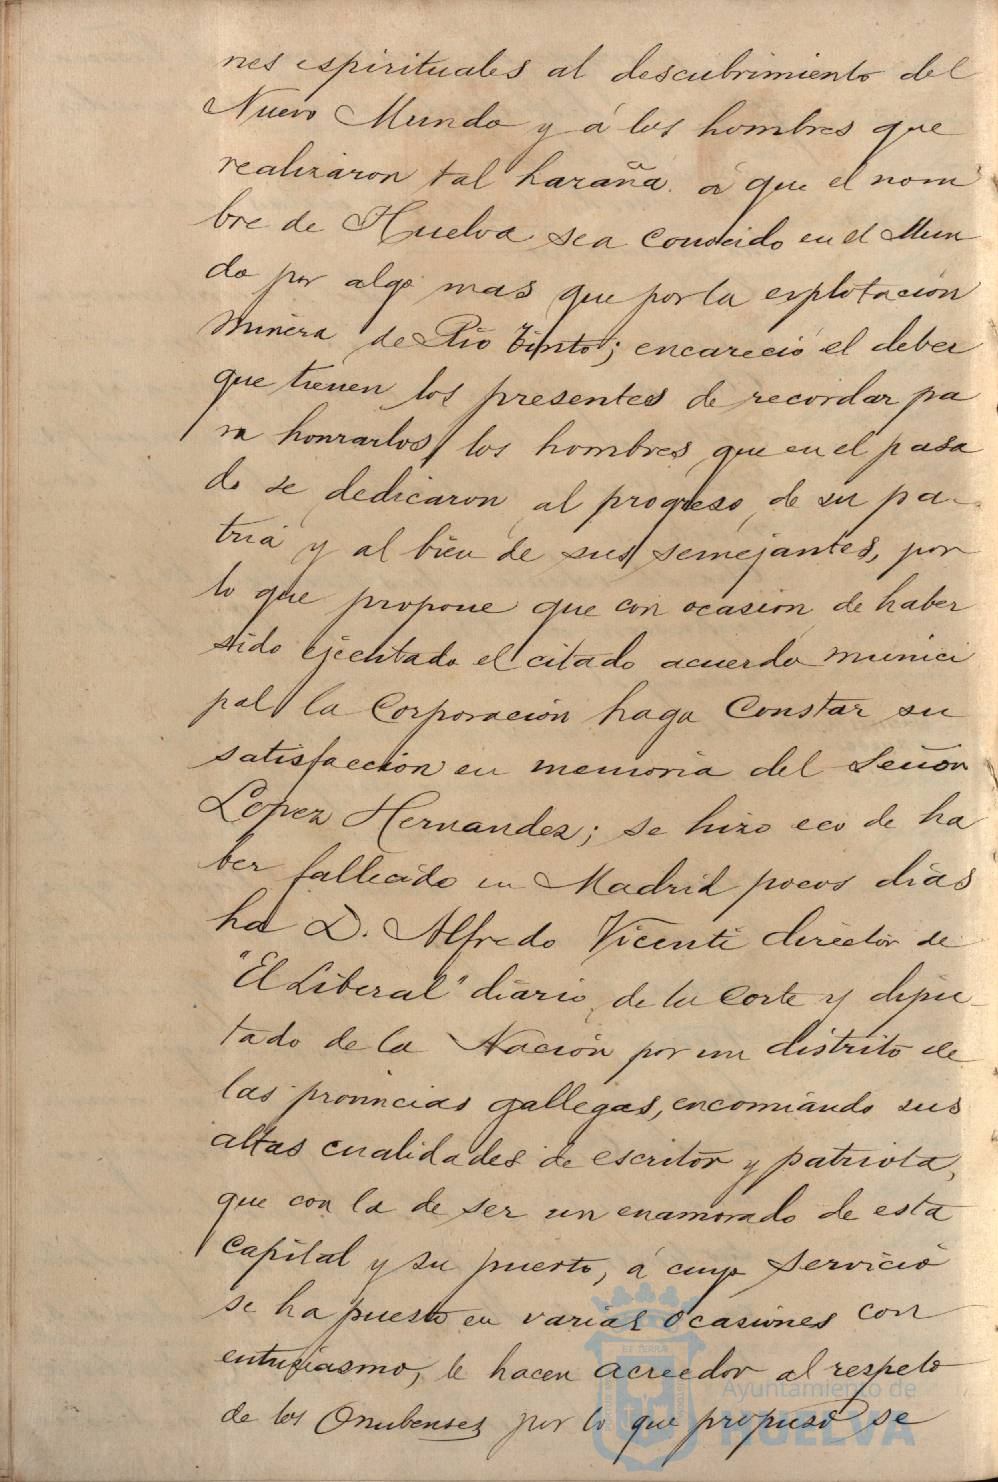 nes espirituales al descubrimiento del
Nuevo Mundo y á los hombres que
realizaron tal hazaña á que el nom
bre de Huelva sea conocido en el Mun
do por algo mas que por la explotacion
minera de Rio Tinto; encareció el deber
que tienen los presentes de recordar pa
ra honrarlos los hombres que en el pasa
do se dedicaron al progreso de su pa-
tria y al bien de sus semejantes, por
lo que propone que con ocasion de haber
sido ejecutado el citado acuerdo munici
pal la Corporacion haga constar su
satisfaccion en memoria del Señor
Lopez Hernandez; se hizo eco de ha
ber fallecido en Madrid pocos dias
ha D. Alfredo Vicenti director de
"El Liberal" diario de la Corte y dipu-
tado de la Nacion por un distrito de
las provincias gallegas, encomiando sus
altas cualidades de escritor y patriota,
que con la de ser un enamorado de esta
capital y su puerto, á cuyo servicio
se ha puesto en varias ocasiones con
entusiasmo, le hacen acreedor al respeto
de los Onubenses por lo que propuso se
ET TERRAE
Ayuntamiento de
HUELVA